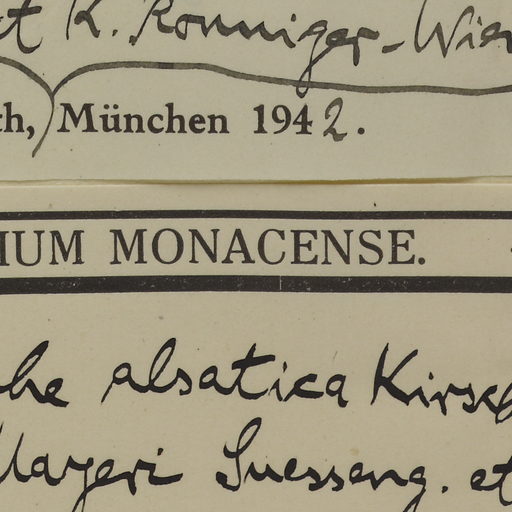 t K. Ronniger - Wien
th, München 1942.
IUM MONACENSE.
che alsatica Kirsch
Mayeri Suesseng. et